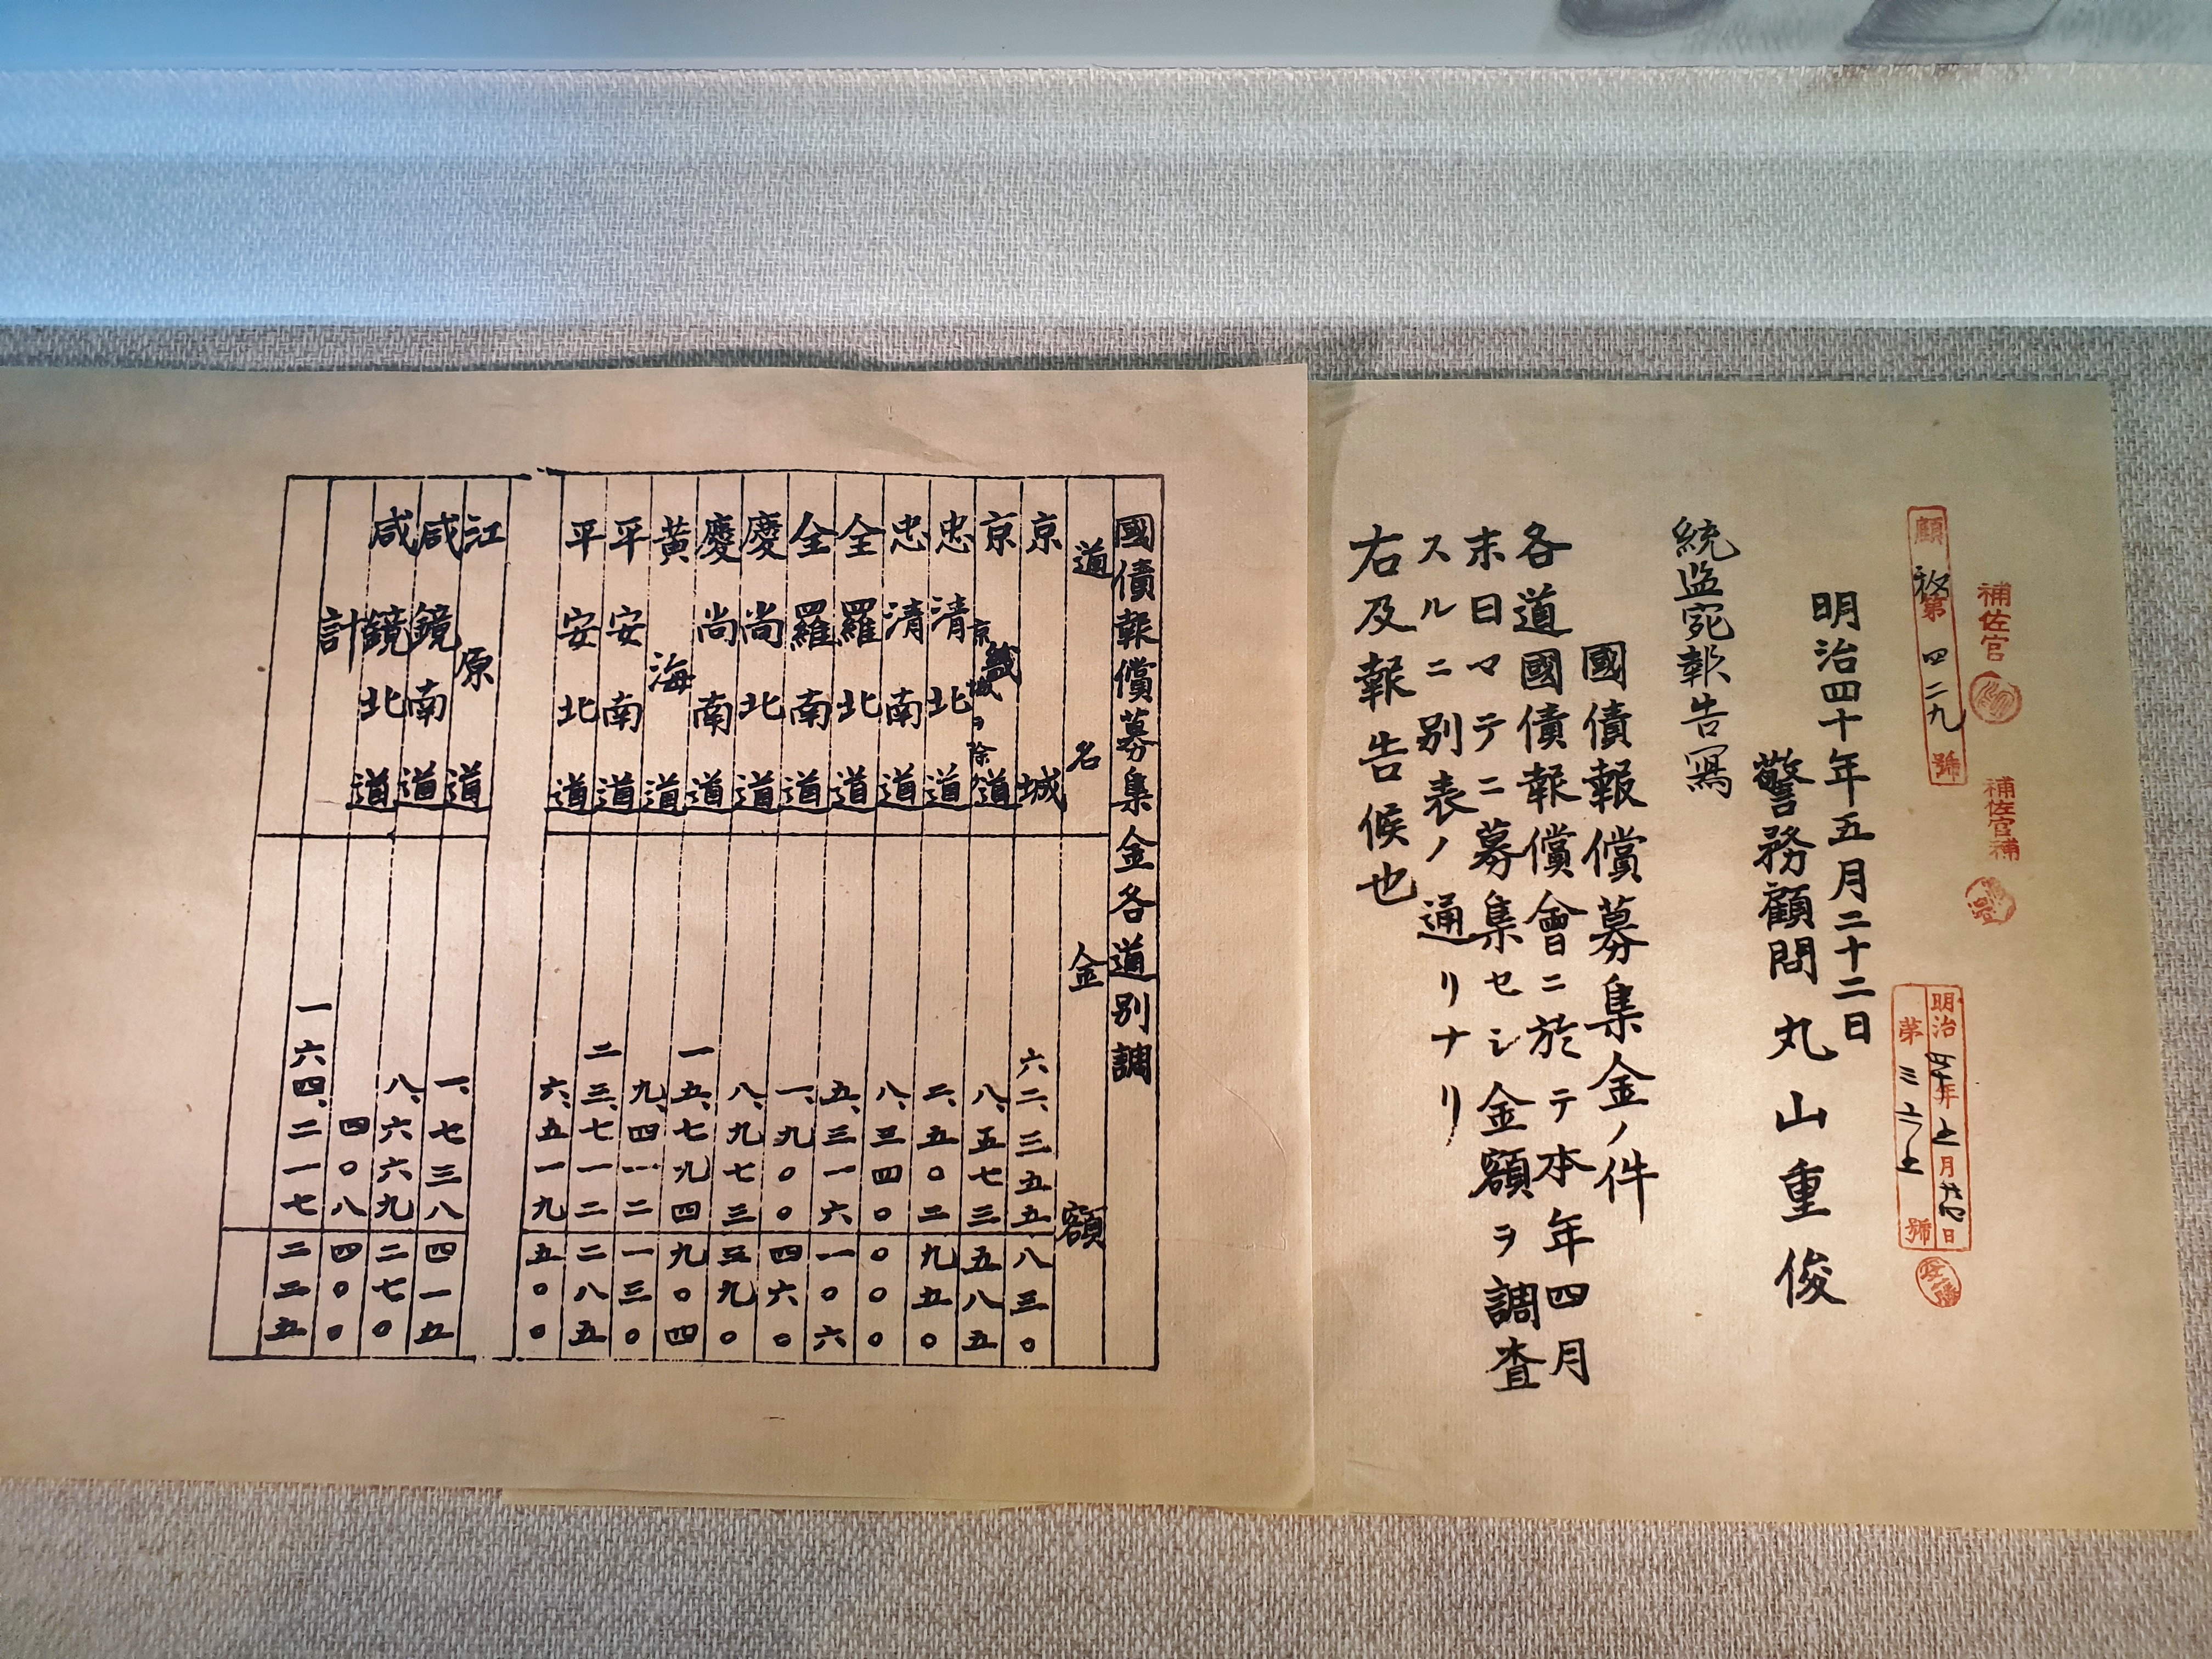 補佐官
補佐官補
顧秘第四二九號
明治四十年五月廿四日
明治四十年五月二十二日
警務顧問丸山重俊
統监宛報告寫
國債報償募集金ノ件
各道國債報償會ニ於テ本年四月
末日マテニ募集セシ金額ヲ調査
スルニ別表ノ通リナリ
右及報告候也
國債報償募集金各道別調
道名 金額
京城 六二、三五五 八三〇
京畿道 京城ヲ除ク 八、五七三 五八五
忠清北道 二、五〇二 九五〇
忠清南道 八、三四〇 〇〇〇
全羅北道 五、三一六 一〇六
全羅南道 一、九〇〇 四六〇
慶尚北道 八、九七三 三九〇
慶尚南道 一五、七九四 九〇四
黃海道 九、四一二 一三〇
平安南道 二三、七一二 二八五
平安北道 六、五一九 五〇〇
江原道 一、七三八 四一五
咸鏡南道 八、六六九 二七〇
咸鏡北道 四〇八 四〇〇
計 一六四、二一七 二二五